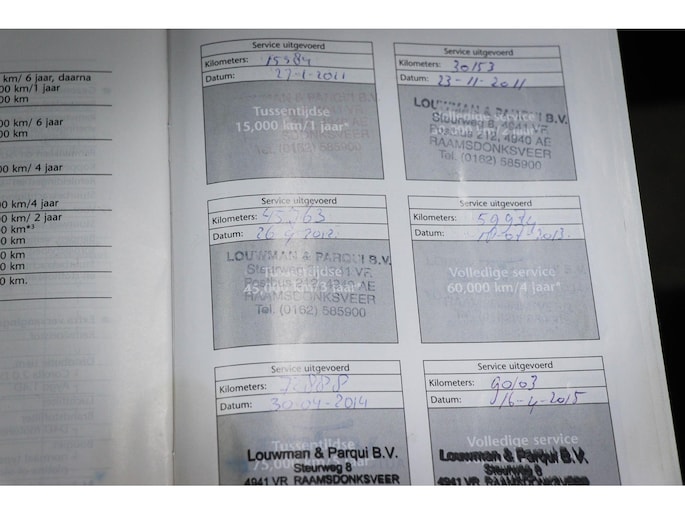 km/ 6 jaar, daarna
00 km/1 jaar
00 km
km/ 6 jaar
00 km
km/ 4 jaar
km/4 jaar
00 km/ 2 jaar
km*3
00 km
00 km
00 km.
Service uitgevoerd
Kilometers: 15984
Datum: 27-1-2011
Tussentijdse
15,000 km/1 jaar*
Tel. (0162) 585900
Service uitgevoerd
Kilometers: 30153
Datum: 23-11-2011
LOUWMAN & PARQUI B.V.
Volledige service
Steurweg 8, 4941 VR
Postbus 212, 4940 AE
RAAMSDONKSVEER
Tel. (0162) 585900
Service uitgevoerd
Kilometers: 45163
Datum: 2012
LOUWMAN & PARQUI B.V.
Tussentijdse
45,000 km/3 jaar*
RAAMSDONKSVEER
Tel. (0162) 585900
Service uitgevoerd
Kilometers: 59934
Datum: 2013
Volledige service
60,000 km/4 jaar*
Service uitgevoerd
Kilometers:
Datum: 30-04-2014
Tussentijdse
Louwman & Parqui B.V.
Steurweg 8
75,000 km/5 jaar
4941 VR RAAMSDONKSVEER
Service uitgevoerd
Kilometers: 90103
Datum: 16-4-2015
Volledige service
Louwman & Parqui B.V.
Steurweg 8
4941 VR RAAMSDONKSVEER